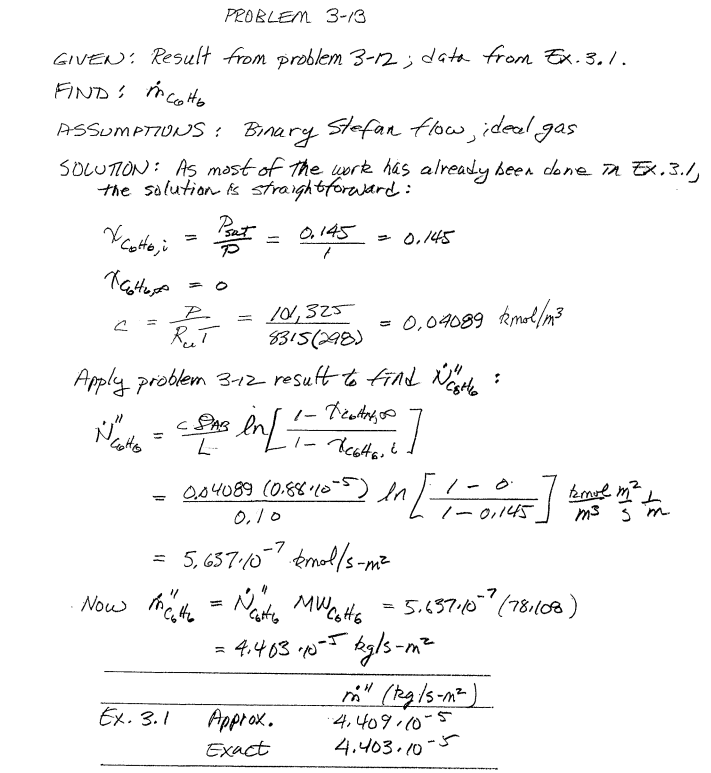 PROBLEM 3-13
GIVEN: Result from problem 3-12; data from Ex. 3.1.
FIND: ṁ_C6H6
ASSUMPTIONS: Binary Stefan flow, ideal gas
SOLUTION: As most of the work has already been done in Ex. 3.1,
the solution is straightforward:
χ_C6H6,i = P_sat/P = 0.145/1 = 0.145
χ_C6H6,∞ = 0
c = P/(R_u T) = 101,325/(8315(298)) = 0.04089 kmol/m³
Apply problem 3-12 result to find Ṅ″_C6H6 :
Ṅ″_C6H6 = (c 𝒟_AB/L) ln[(1 - χ_C6H6,∞)/(1 - χ_C6H6,i)]
= (0.04089 (0.88·10⁻⁵)/0.10) ln[(1 - 0)/(1 - 0.145)] kmol/m³ m²/s 1/m
= 5.637·10⁻⁷ kmol/s-m²
Now ṁ″_C6H6 = Ṅ″_C6H6 MW_C6H6 = 5.637·10⁻⁷ (78.108)
= 4.403·10⁻⁵ kg/s-m²
ṁ″ (kg/s-m²)
Ex. 3.1 Approx. 4.409·10⁻⁵
Exact 4.403·10⁻⁵